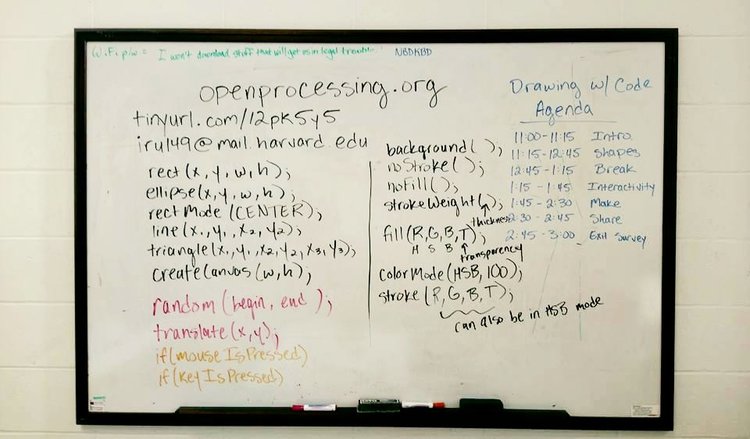 WiFi p/w = I won't download stuff that will get us in legal trouble. NBDKBD
openprocessing.org
tinyurl.com/12pk5y5
iru149@mail.harvard.edu
rect(x,y,w,h);
ellipse(x,y,w,h);
rectMode(CENTER);
line(x,,y,,x2,y2);
triangle(x,,y,,x2,y2,x3,y3);
createCanvas(w,h);
random(begin, end );
translate(x,y);
if(mouseIsPressed)
if(keyIsPressed)
background( );
noStroke( );
noFill( );
strokeWeight( );
thickness
fill(R,G,B,T);
H S B
transparency
colorMode(HSB,100);
stroke (R,G,B,T);
can also be in HSB mode
Drawing w/ Code
Agenda
11:00-11:15 Intro
11:15-12:45 Shapes
12:45-1:15 Break
1:15-1:45 Interactivity
1:45-2:30 Make
2:30-2:45 Share
2:45-3:00 Exit Survey